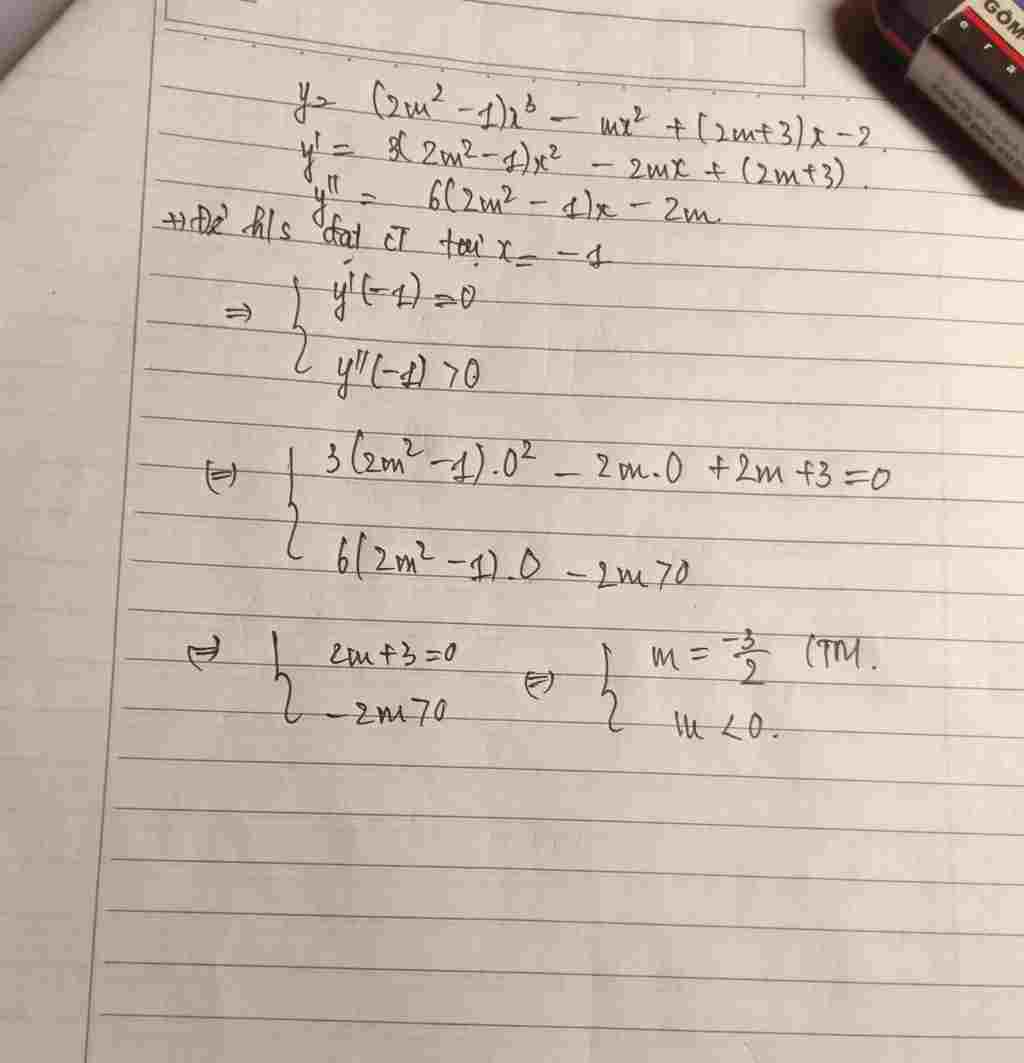 GÔM
era
y = (2m² - 1)x³ - mx² + (2m+3)x - 2.
y' = 3(2m² - 1)x² - 2mx + (2m+3).
y'' = 6(2m² - 1)x - 2m.
+) Để h/s đạt CT tại x = -1
⇒ { y'(-1) = 0
y''(-1) > 0
⇔ { 3(2m² - 1).0² - 2m.0 + 2m + 3 = 0
6(2m² - 1).0 - 2m > 0
⇔ { 2m + 3 = 0 ⇔ { m = -3/2 (TM.
-2m > 0 m < 0.